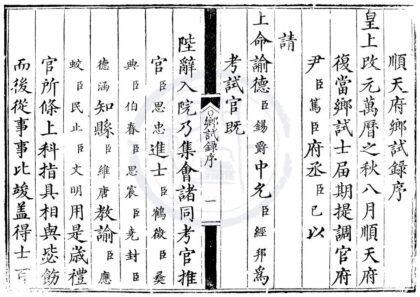 順天府鄉試錄序
皇上改元萬曆之秋八月順天府
復當鄉試士屆期提調官府
尹臣篤臣府丞臣已以
請
上命諭德臣錫爵中允臣經邦為
考試官既
鄉試錄序
一
陛辭入院乃集會諸同考官推
官臣思忠進士臣鶴徵臣奏
典臣伯春臣思宸臣堯封臣
德滿知縣臣維唐教諭臣應
蛟臣民止臣文明用是歲禮
官所條上科指具相與悉飭
而後從事事比竣蓋得士百